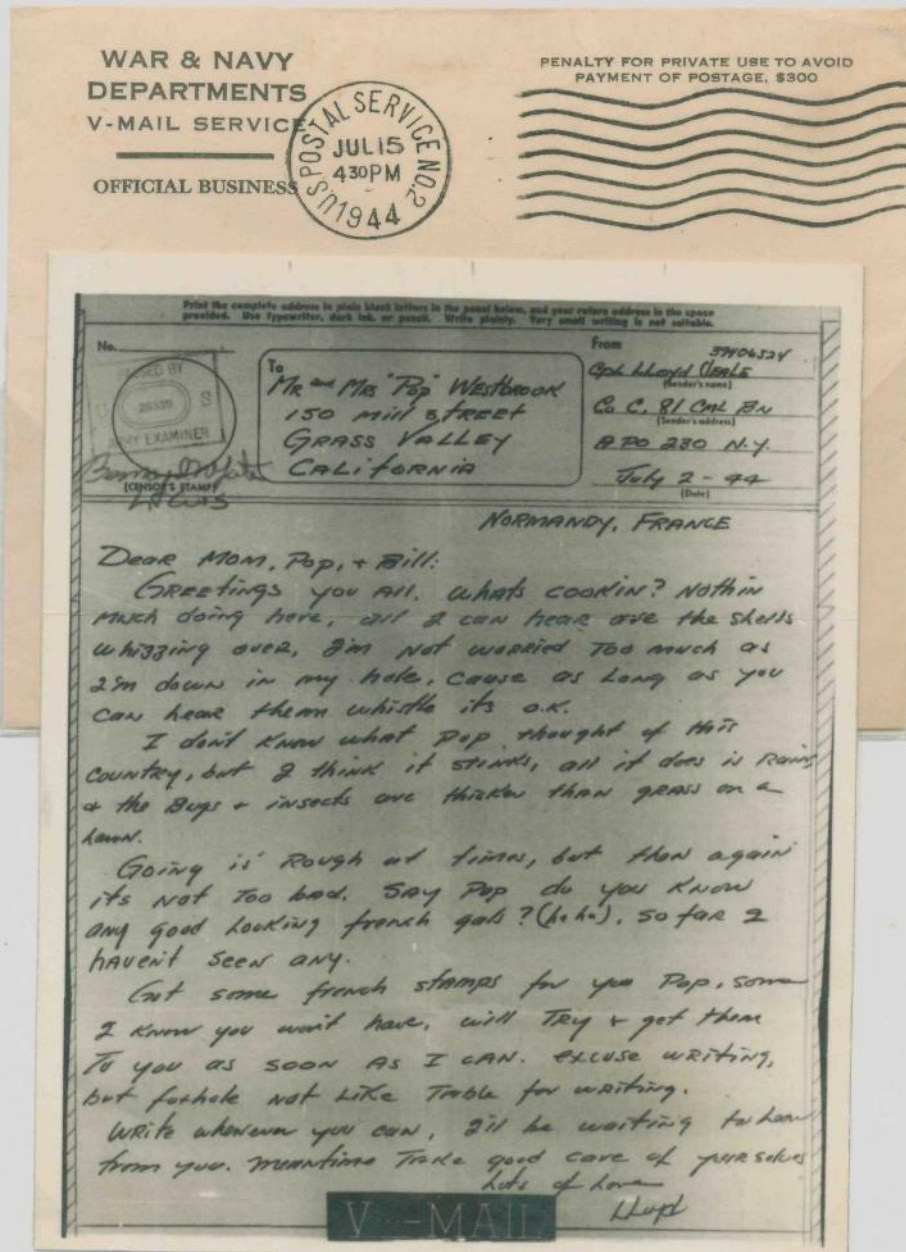 WAR & NAVY
DEPARTMENTS
V-MAIL SERVICE
OFFICIAL BUSINESS
U.S. POSTAL SERVICE NO. 2
JUL 15
4 30 PM
1944
PENALTY FOR PRIVATE USE TO AVOID
PAYMENT OF POSTAGE, $300
Print the complete address in plain block letters in the panel below, and your return address in the space
provided. Use typewriter, dark ink, or pencil. Write plainly. Very small writing is not suitable.
No.
BY
U S
ARMY EXAMINER
(CENSOR'S STAMP)
To
MR and MRS "Pop" WESTBROOK
150 MILL STREET
GRASS VALLEY
CALIFORNIA
From
39406524
Cpl Lloyd
(Sender's name)
Co C, 81 CML BN
(Sender's address)
APO 230 N.Y.
July 2 - 44
(Date)
NORMANDY, FRANCE
Dear Mom, Pop, + Bill:
Greetings you all. whats cookin? Nothin
much doing here, all I can hear are the shells
whizzing over, I'm not worried too much as
I'm down in my hole, cause as long as you
can hear them whistle its o.k.
I don't know what Pop thought of this
country, but I think it stinks, all it does is rain,
+ the Bugs + insects are thicker than grass on a
lawn.
Going is rough at times, but then again
its not too bad. Say Pop do you know
any good looking french gals? (ha ha). So far I
haven't seen any.
Got some french stamps for you Pop, some
I know you won't have, will try + get them
to you as soon as I can. excuse writing,
but foxhole not like table for writing.
Write whenever you can, I'll be waiting to hear
from you. meantime take good care of yourselves
Lots of Love
Lloyd
V-MAIL